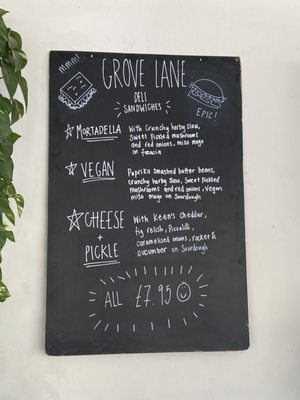 mmm!
GROVE LANE
DELI
SANDWICHES
EPIC!
MORTADELLA
With Crunchy herby slaw,
Sweet Pickled mushrooms
and red onions, miso mayo
on focaccia
VEGAN
Paprika Smashed butter beans,
crunchy herby slaw, Sweet Pickled
mushrooms and red onions, Vegan
miso mayo on Sourdough
CHEESE
+
PICKLE
With Keen's Cheddar,
fig relish, Piccalilli,
caramelised onions, rocket &
cucumber on Sourdough
ALL £7.95